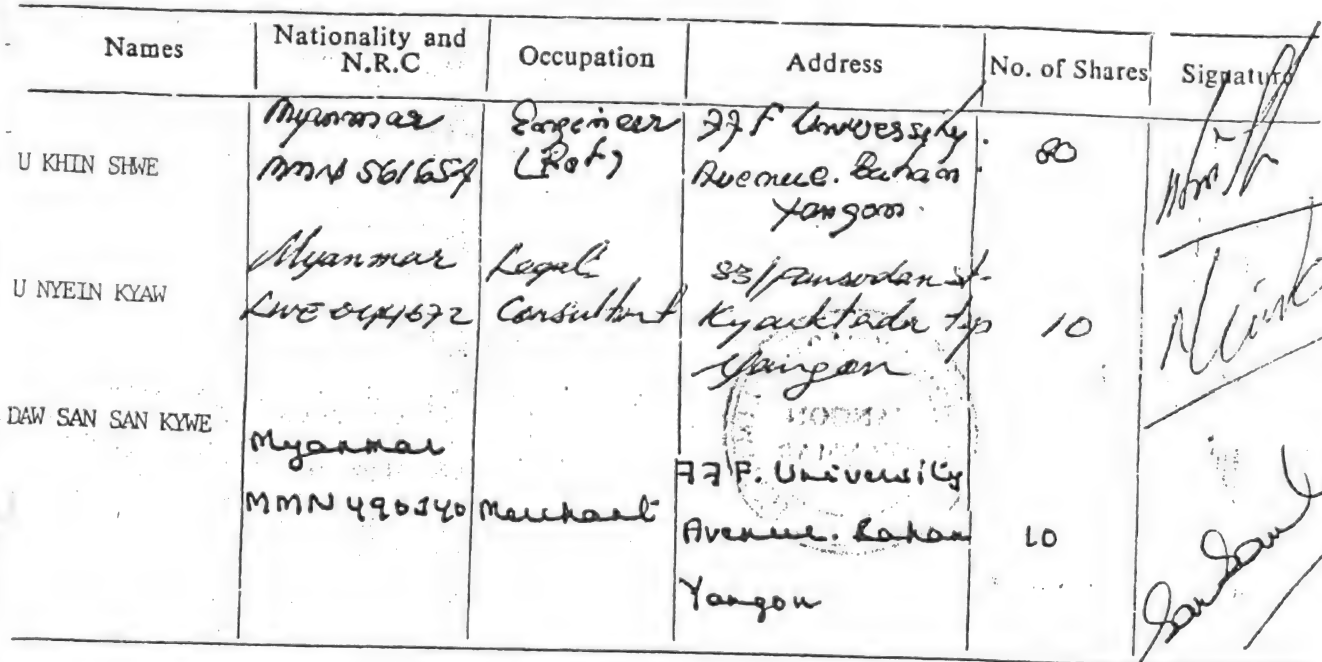 Names
Nationality and
N.R.C
Occupation
Address
No. of Shares
Signature
U KHIN SHWE
Myanmar
MMN
Engineer
(Ret)
77 F University
Avenue. Bahan
Yangon.
80
U NYEIN KYAW
Myanmar
Legal
Consultant
83/ Pansodan st.
Kyauktada tsp
Yangon
10
DAW SAN SAN KYWE
Myanmar
MMN 490140
Merchant
77 F. University
Avenue. Bahan
Yangon
10
San San